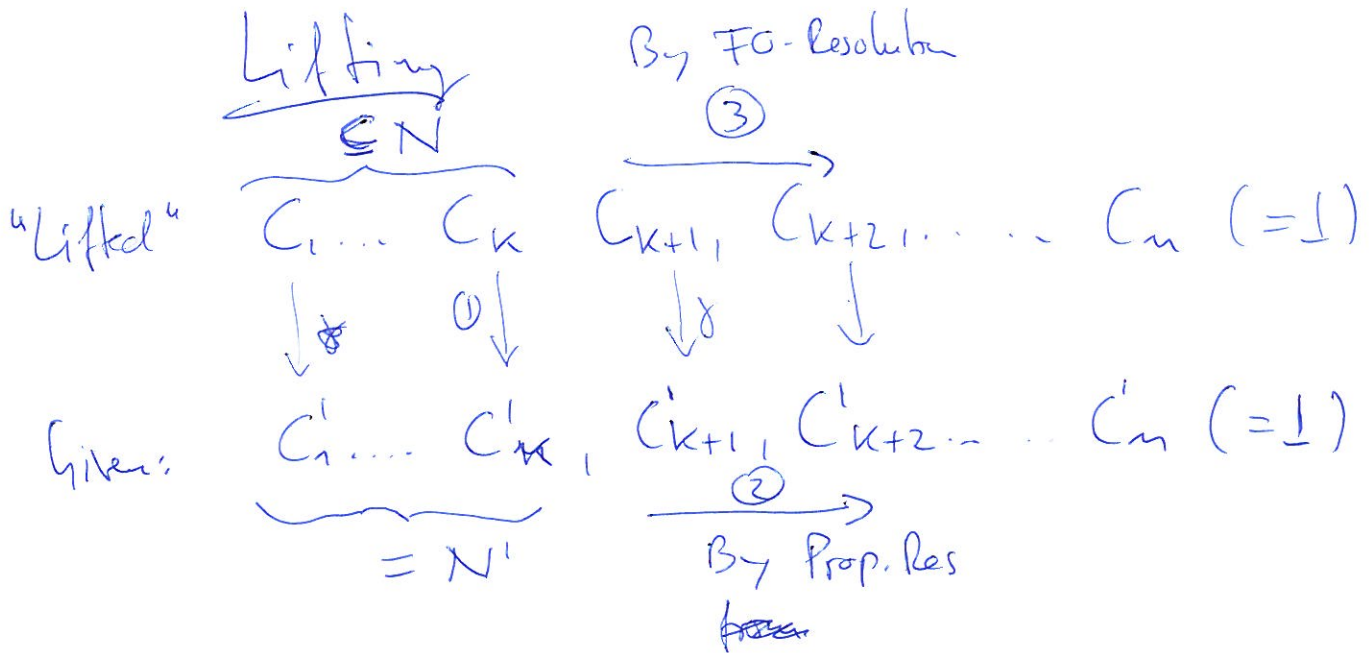 Lifting By FO-Resolution
⊆ N ③
"Lifted" C₁ .... Cₖ Cₖ₊₁, Cₖ₊₂, ..... Cₙ (=⊥)
① γ
Given: C'₁ .... C'ₖ, C'ₖ₊₁, C'ₖ₊₂ .. .. C'ₙ (=⊥)
②
= N' By Prop. Res